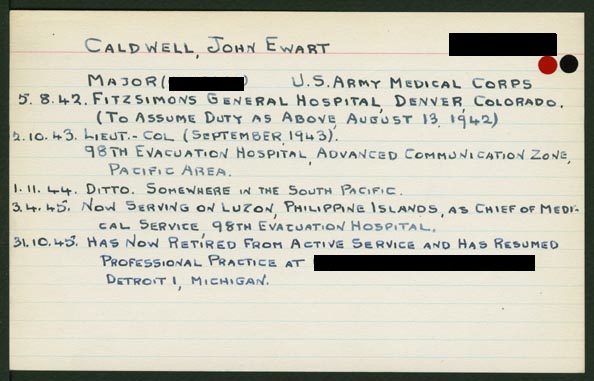 CALDWELL, JOHN EWART
MAJOR ( ) U.S. ARMY MEDICAL CORPS
5. 8. 42. FITZSIMONS GENERAL HOSPITAL, DENVER, COLORADO.
(TO ASSUME DUTY AS ABOVE AUGUST 13, 1942)
2. 10. 43. LIEUT.- COL (SEPTEMBER, 1943).
98TH EVACUATION HOSPITAL, ADVANCED COMMUNICATION ZONE,
PACIFIC AREA.
1. 11. 44. DITTO. SOMEWHERE IN THE SOUTH PACIFIC.
3. 4. 45. NOW SERVING ON LUZON, PHILIPPINE ISLANDS, AS CHIEF OF MEDI-
CAL SERVICE, 98TH EVACUATION HOSPITAL.
31. 10. 45. HAS NOW RETIRED FROM ACTIVE SERVICE AND HAS RESUMED
PROFESSIONAL PRACTICE AT
DETROIT 1, MICHIGAN.